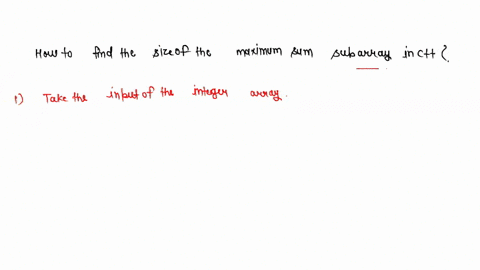 How to find the size of the maximum sum subarray in C++ ?
1) Take the input of the integer array.